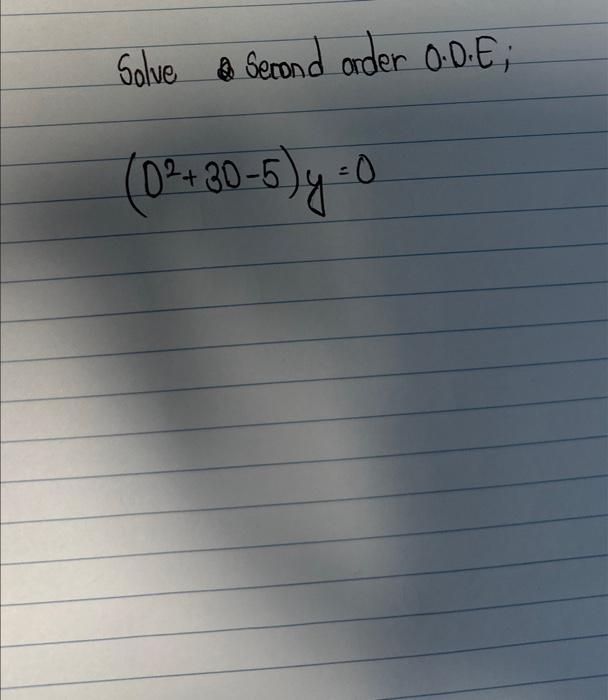 Solve a second order O.D.E;
(D²+3D-5)y=0